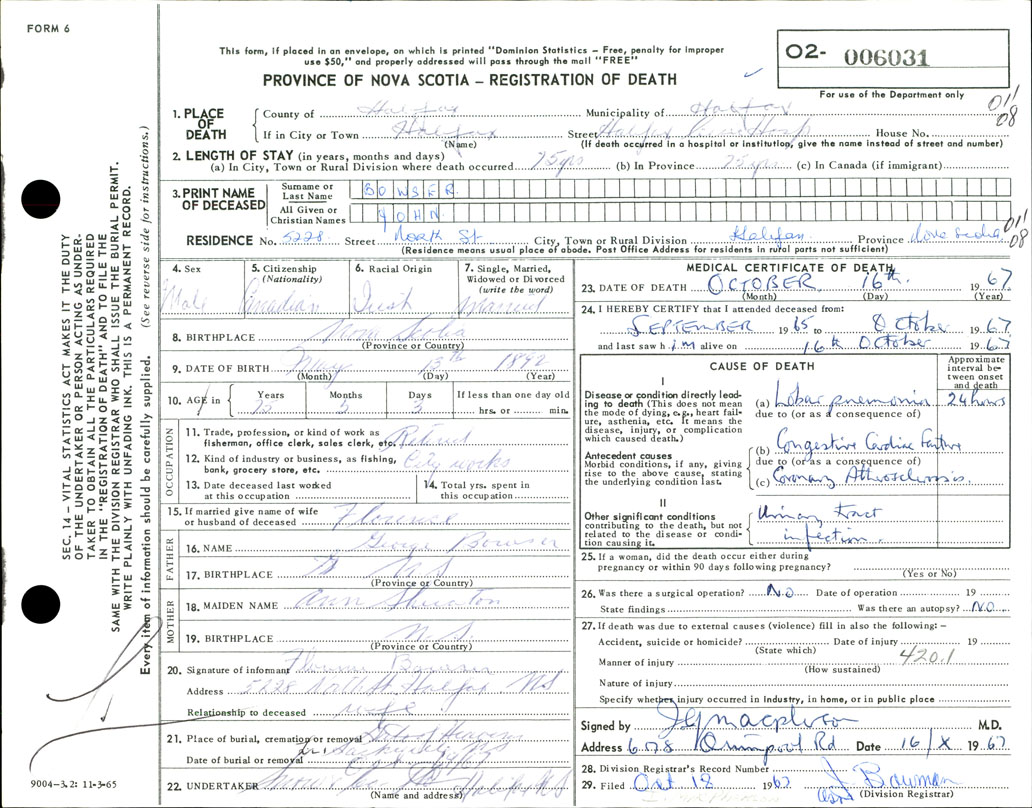 FORM 6
This form, if placed in an envelope, on which is printed "Dominion Statistics – Free, penalty for improper
use $50," and properly addressed will pass through the mail "FREE"
PROVINCE OF NOVA SCOTIA – REGISTRATION OF DEATH
O2- 006031
For use of the Department only
011
08
1. PLACE OF DEATH
County of Halifax Municipality of Halifax
If in City or Town Halifax Street Halifax House No.
(Name) (If death occurred in a hospital or institution, give the name instead of street and number)
2. LENGTH OF STAY (in years, months and days)
(a) In City, Town or Rural Division where death occurred 75 yrs (b) In Province 75 yrs (c) In Canada (if immigrant)
3. PRINT NAME OF DECEASED
Surname or Last Name BOWSER
All Given or Christian Names JOHN
RESIDENCE No. 5228 Street North St City, Town or Rural Division Halifax Province Nova Scotia
011
08
(Residence means usual place of abode. Post Office Address for residents in rural parts not sufficient)
4. Sex Male
5. Citizenship (Nationality) Canadian
6. Racial Origin Irish
7. Single, Married, Widowed or Divorced (write the word) Married
8. BIRTHPLACE Nova Scotia
(Province or Country)
9. DATE OF BIRTH May 13th 1892
(Month) (Day) (Year)
10. AGE in Years 75 Months 5 Days 3 If less than one day old hrs. or min.
OCCUPATION
11. Trade, profession, or kind of work as
fisherman, office clerk, sales clerk, etc. Retired
12. Kind of industry or business, as fishing,
bank, grocery store, etc. City works
13. Date deceased last worked
at this occupation
14. Total yrs. spent in
this occupation
15. If married give name of wife
or husband of deceased Florence
FATHER
16. NAME George Bowser
17. BIRTHPLACE N S
(Province or Country)
MOTHER
18. MAIDEN NAME Ann
19. BIRTHPLACE N S
(Province or Country)
20. Signature of informant Florence Bowser
Address 5228 North St Halifax N S
Relationship to deceased wife
21. Place of burial, cremation or removal
Sackville
Date of burial or removal
22. UNDERTAKER Halifax N S
(Name and address)
MEDICAL CERTIFICATE OF DEATH
23. DATE OF DEATH OCTOBER 16th 1967
(Month) (Day) (Year)
24. I HEREBY CERTIFY that I attended deceased from:
SEPTEMBER 1965 to October 1967
and last saw him alive on 16th October 1967
CAUSE OF DEATH
Approximate interval between onset and death
I
Disease or condition directly leading to death (This does not mean the mode of dying, e.g., heart failure, asthenia, etc. It means the disease, injury, or complication which caused death.)
(a) Lobar pneumonia 24 hours
due to (or as a consequence of)
Antecedent causes
Morbid conditions, if any, giving rise to the above cause, stating the underlying condition last.
(b) Congestive Cardiac Failure
due to (or as a consequence of)
(c) Coronary Atherosclerosis.
II
Other significant conditions
contributing to the death, but not related to the disease or condition causing it.
Urinary tract
infection.
25. If a woman, did the death occur either during
pregnancy or within 90 days following pregnancy?
(Yes or No)
26. Was there a surgical operation? NO Date of operation 19
State findings Was there an autopsy? NO
27. If death was due to external causes (violence) fill in also the following: –
Accident, suicide or homicide? Date of injury 19
(State which)
Manner of injury 420.1
(How sustained)
Nature of injury
Specify whether injury occurred in industry, in home, or in public place
Signed by M.D.
Address 6078 Rd Date 16/X 1967
28. Division Registrar's Record Number
29. Filed Oct 18 1967 J Bowman
(Division Registrar)
SEC. 14 – VITAL STATISTICS ACT MAKES IT THE DUTY
OF THE UNDERTAKER OR PERSON ACTING AS UNDER-
TAKER TO OBTAIN ALL THE PARTICULARS REQUIRED
IN THE "REGISTRATION OF DEATH" AND TO FILE THE
SAME WITH THE DIVISION REGISTRAR WHO SHALL ISSUE THE BURIAL PERMIT.
WRITE PLAINLY WITH UNFADING INK. THIS IS A PERMANENT RECORD.
Every item of information should be carefully supplied. (See reverse side for instructions.)
9004–3.2: 11-3-65